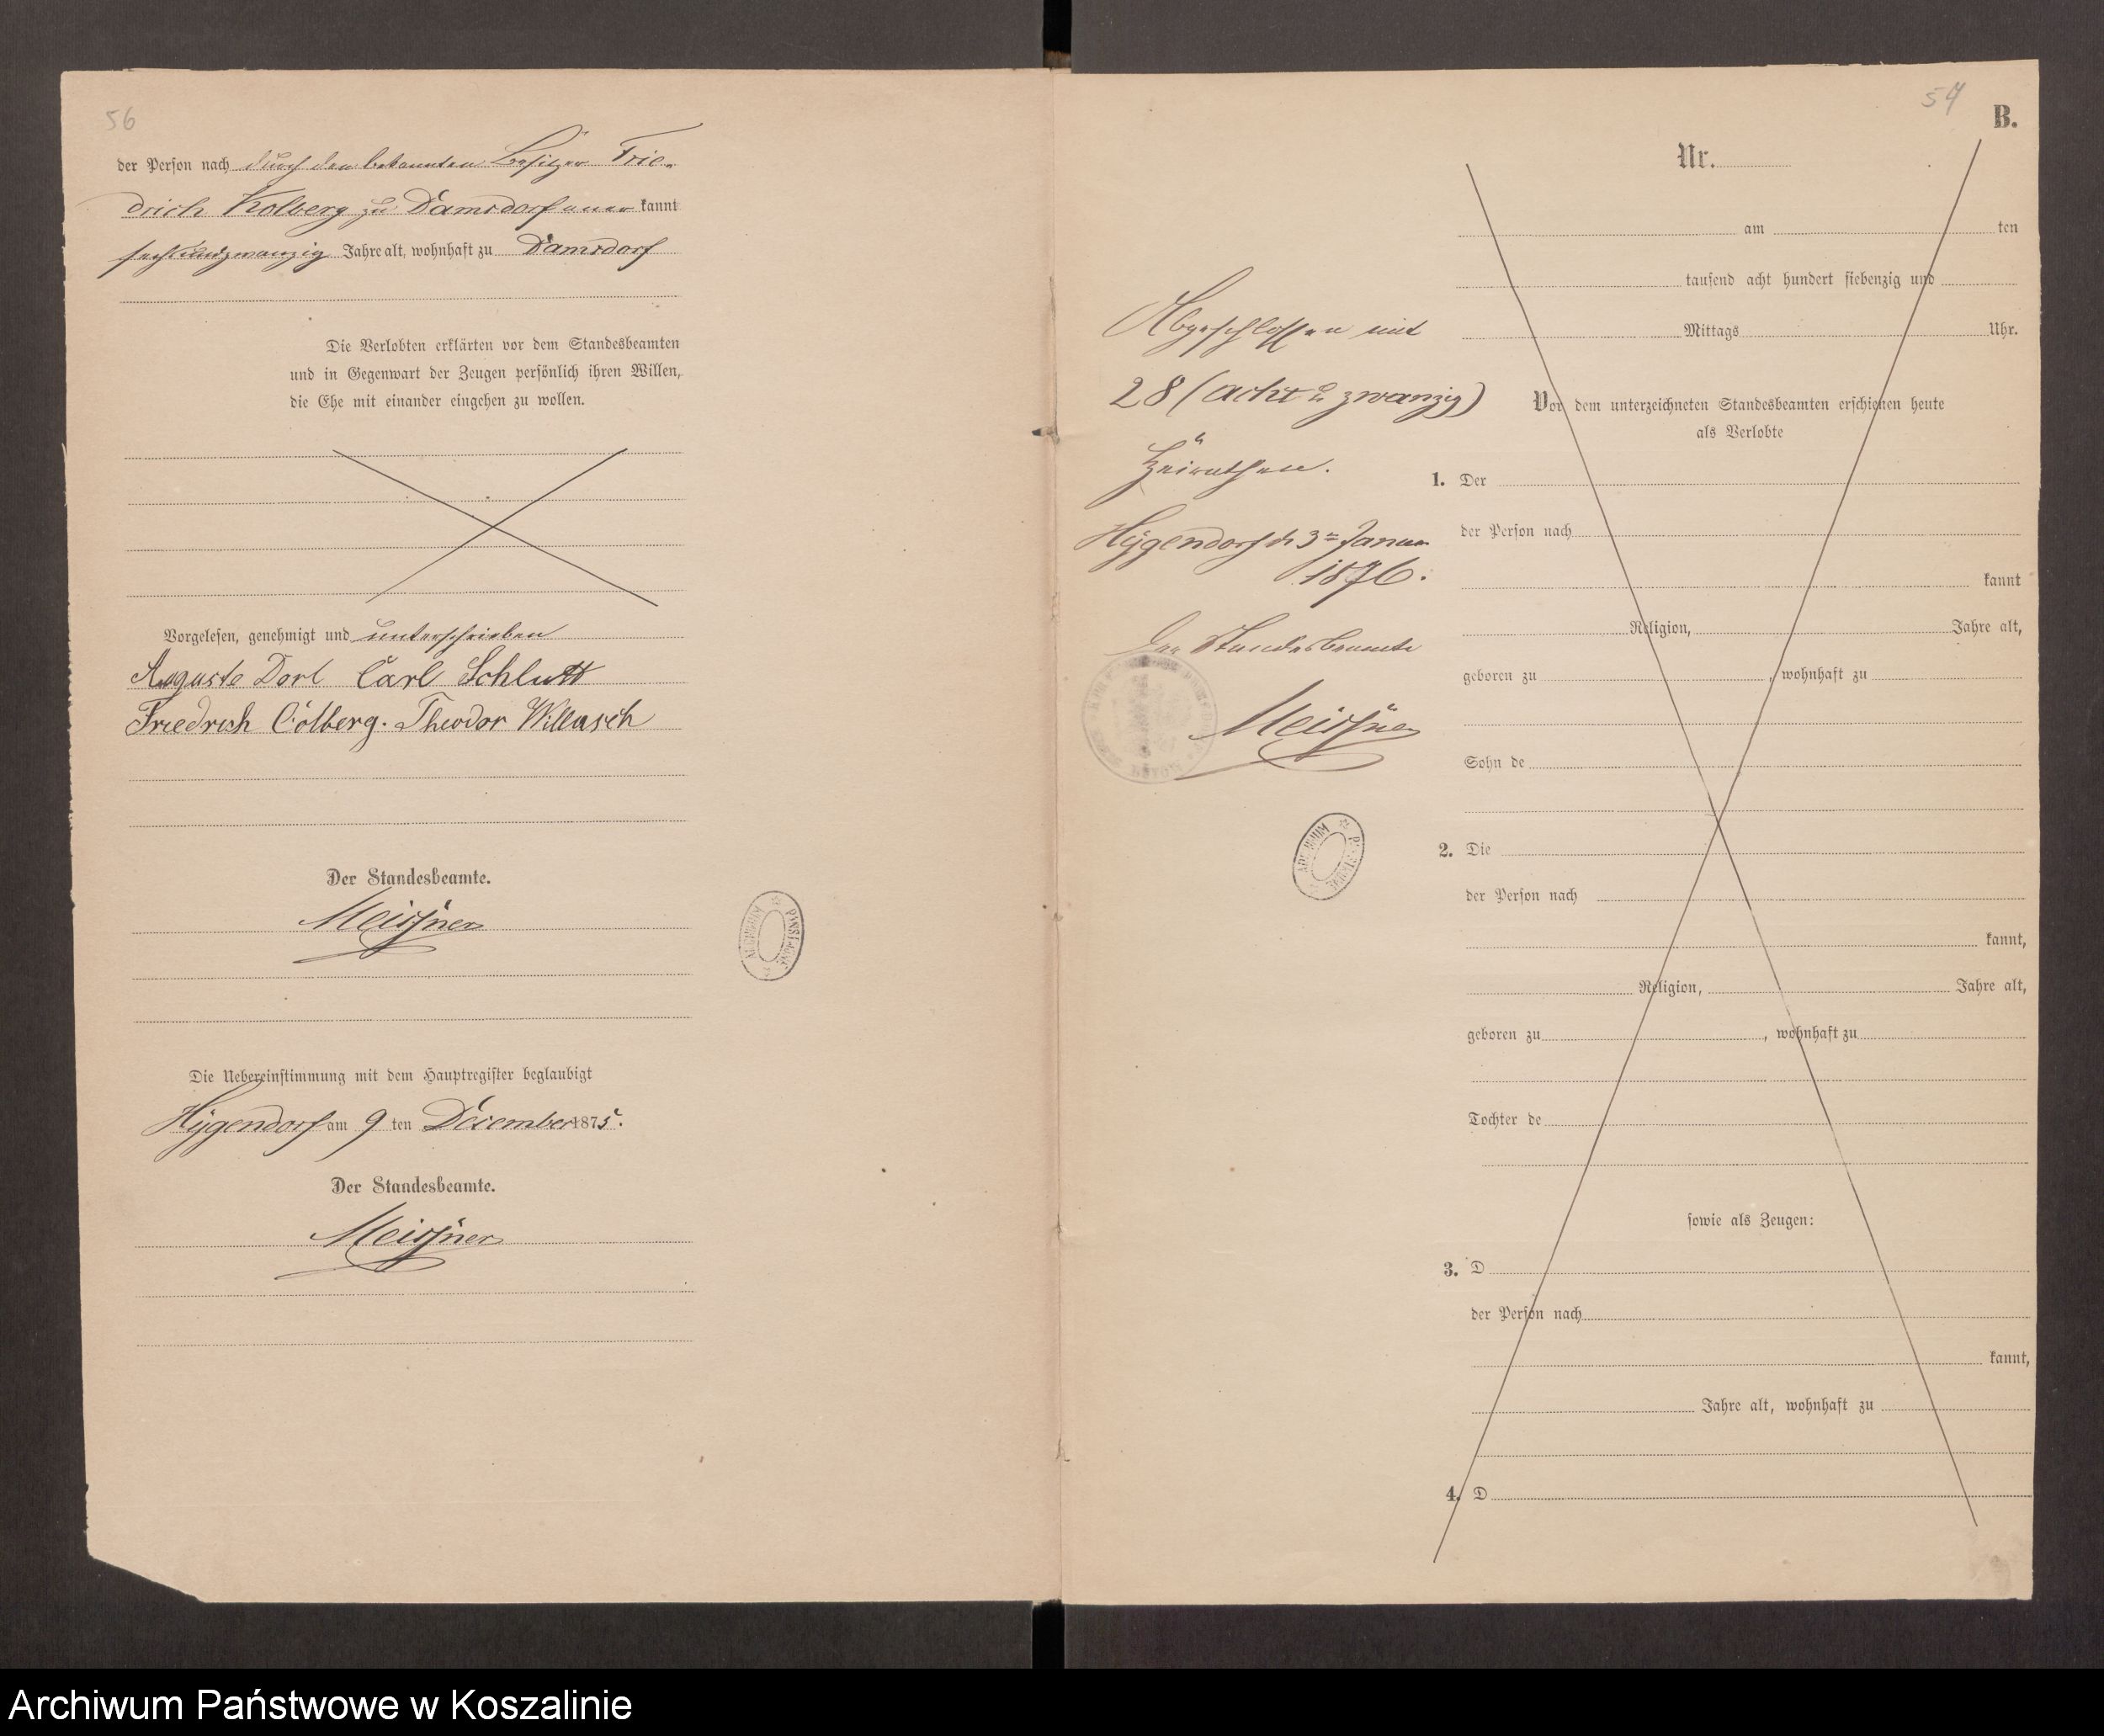 56
der Person nach durch den bekannten Besitzer Frie-
drich Kolberg zu Damsdorf aner kannt
sechsundzwanzig Jahre alt, wohnhaft zu Damsdorf
Die Verlobten erklärten vor dem Standesbeamten
und in Gegenwart der Zeugen persönlich ihren Willen,
die Ehe mit einander eingehen zu wollen.
Vorgelesen, genehmigt und unterschrieben
Auguste Dorl Carl Schlutt
Friedrich Cölberg. Theodor Willasch
Der Standesbeamte.
Meissner
Die Uebereinstimmung mit dem Hauptregister beglaubigt
Hygendorf am 9 ten Dezember 1875.
Der Standesbeamte.
Meissner
57
B.
Nr.
am ten
tausend acht hundert siebenzig und
Mittags Uhr.
Vor dem unterzeichneten Standesbeamten erschienen heute
als Verlobte
1. Der
der Person nach
kannt
Religion, Jahre alt,
geboren zu , wohnhaft zu
Sohn de
2. Die
der Person nach
kannt,
Religion, Jahre alt,
geboren zu , wohnhaft zu
Tochter de
sowie als Zeugen:
3. D
der Person nach
kannt,
Jahre alt, wohnhaft zu
4. D
Abgeschlossen mit
28 (acht u zwanzig)
Heirathen.
Hygendorf d 3ten Januar
1876.
Der Standesbeamte
Meissner
Archiwum Państwowe w Koszalinie